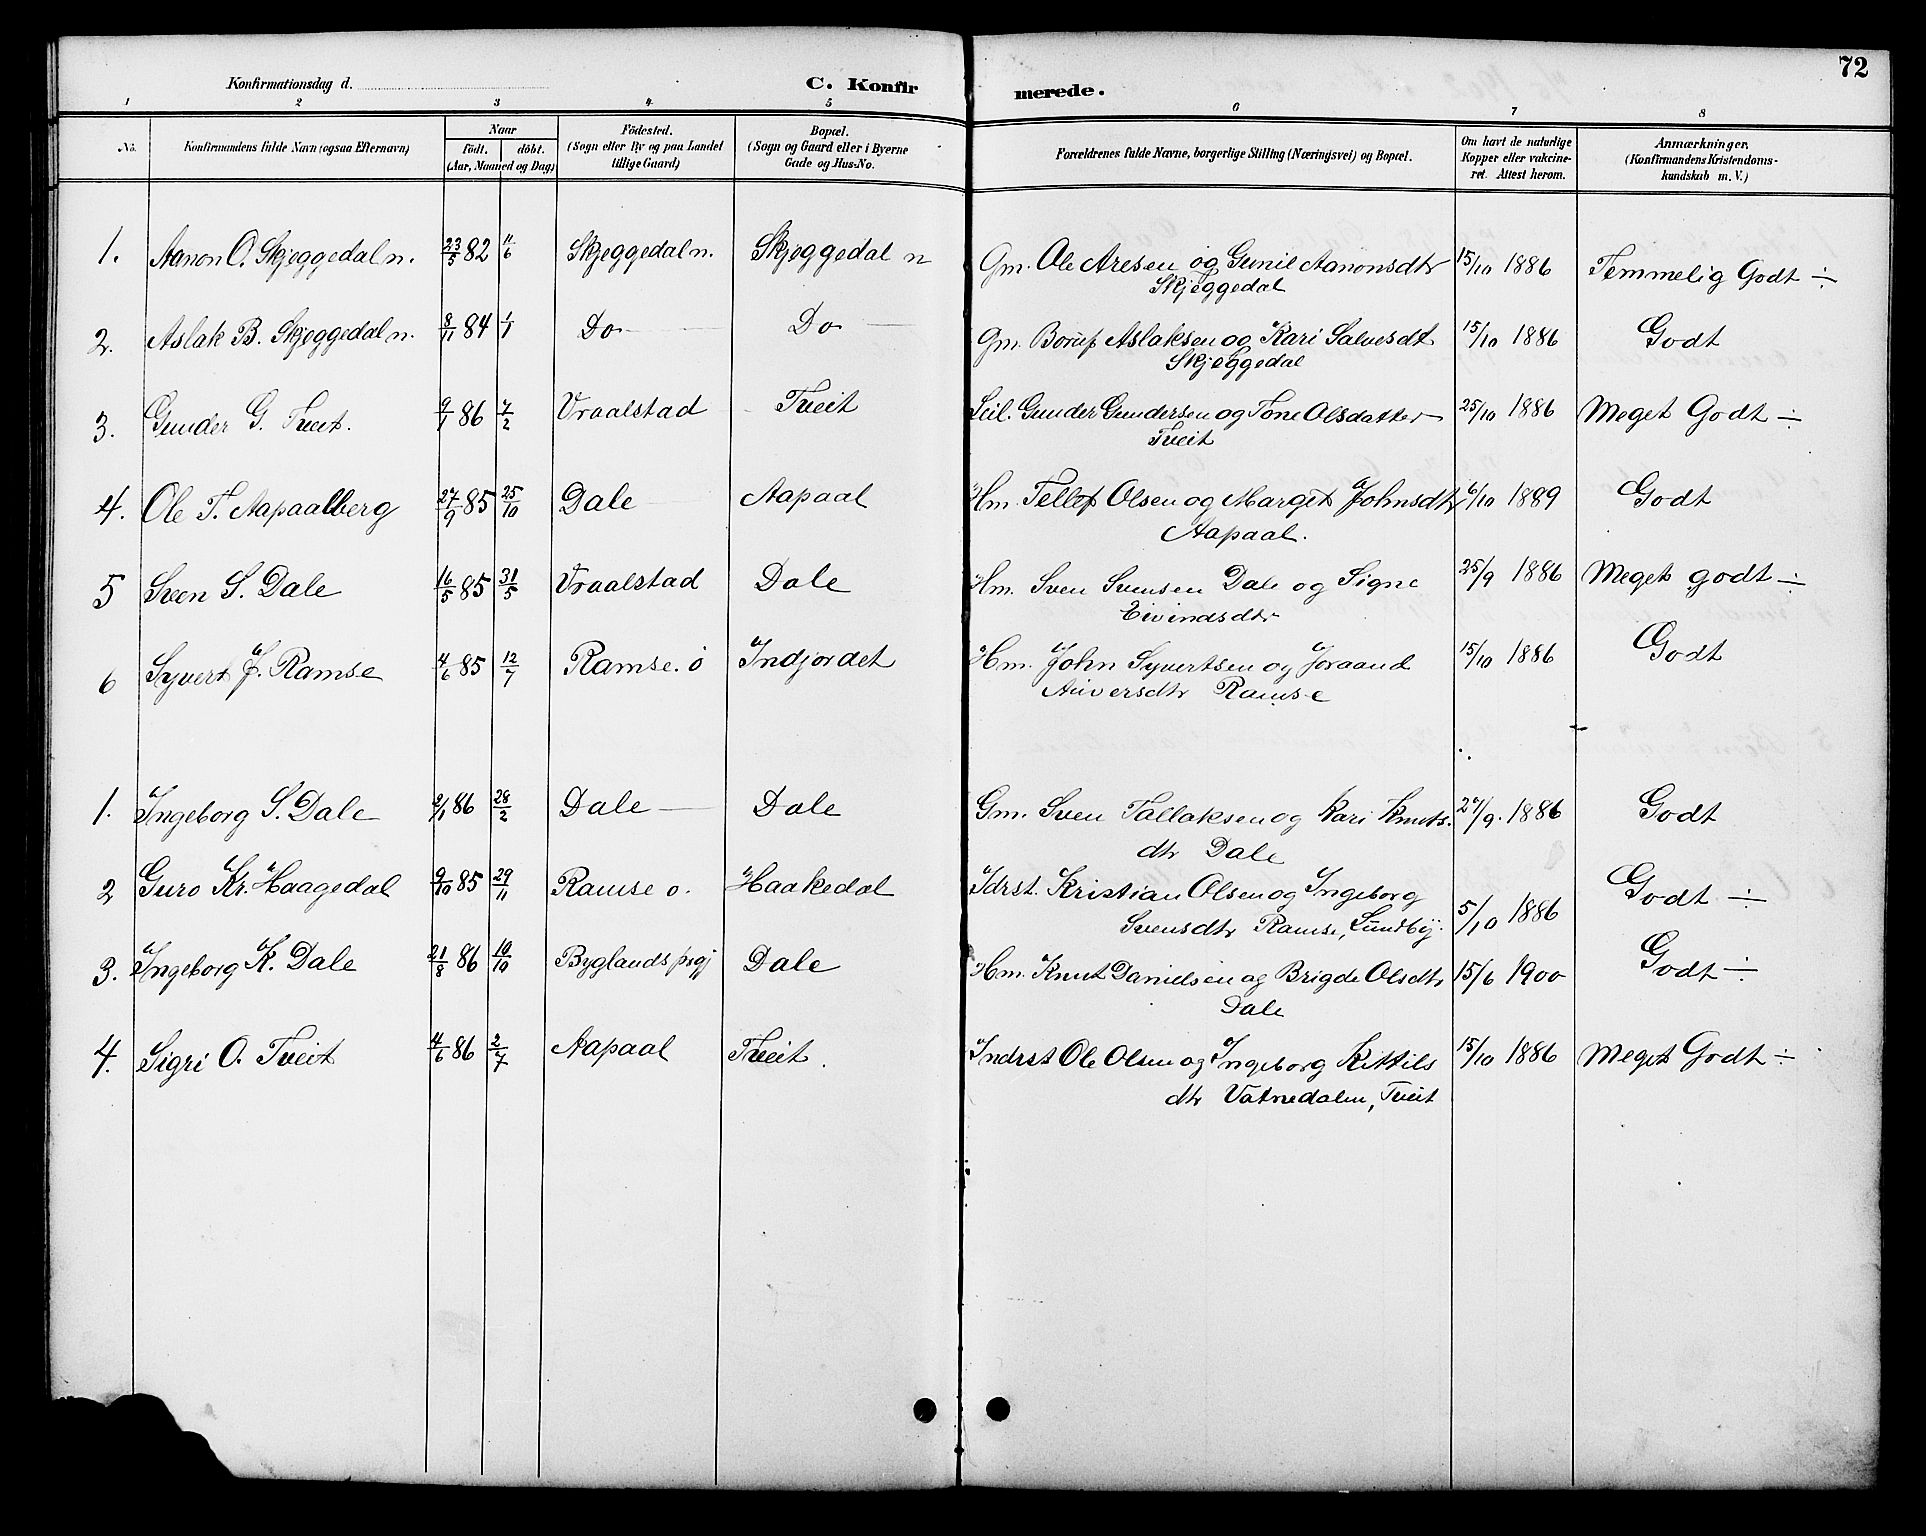 72
Konfirmationsdag d.
C. Konfirmerede.
1 2 3 4 5 6 7 8
No. Konfirmandens fulde Navn (ogsaa Efternavn) Naar Födt. döbt. (Aar, Maaned og Dag) Födested. (Sogn eller By og paa Landet tillige Gaard) Bopæl. (Sogn og Gaard eller i Byerne Gade og Hus-No. Forældrenes fulde Navne, borgerlige Stilling (Næringsvei) og Bopæl. Om havt de naturlige Kopper eller vakcineret. Attest herom. Anmærkninger, (Konfirmandens Kristendomskundskab m. V.)
1. Aanon O. Skjeggedal n. 23/5 82 11/6 Skjeggedal n. Skjeggedal n Gm. Ole Aresen og Gunil Aanonsdtr 15/10 1886 Temmelig Godt ÷
Skjeggedal
2. Aslak B. Skjeggedal n. 8/11 84 1/1 Do Do Gm. Aslaksen og Kari Salvesdt 15/10 1886 Godt
Skjeggedal
3. Gunder G. Tveit. 9/1 86 7/2 Vraalstad Tveit Leil. Gunder Gundersen og Tone Olsdatter 25/10 1886 Meget Godt ÷
Tveit
4. Ole T. Aapaalberg 27/9 85 25/10 Dale Aapaal Hm. Tellef Olsen og Marget Johnsdtr 6/10 1889 Godt
Aapaal.
5 Sven S. Dale 16/5 85 31/5 Vraalstad Dale Hm. Sven Svensen Dale og Signe 25/9 1886 Meget godt ÷
Eivindsdtr
6 Syvert J. Ramse 4/6 85 12/7 Ramse. ö Indjordet Hm. John Syvertsen og Joraand 15/10 1886 Godt
Ramse
1. Ingeborg S. Dale 2/1 86 28/2 Dale Dale Gm. Sven Tallaksen og Kari Knuts. 27/9. 1886 Godt
dtr Dale
2 Guro Kr. Haagedal 9/10 85 29/11 Ramse o. Haakedal Idrst. Kristian Olsen og Ingeborg 5/10 1886 Godt ÷
Svensdtr Ramse, Lundby.
3. Ingeborg K. Dale 21/8 86 10/10 Byglands prgj Dale Hm. Knut Danielsen og Brigde Olsdtr 15/6 1900 Godt ÷
Dale
4. Sigri O. Tveit 4/6 86 2/7 Aapaal Tveit. Indrst Ole Olsen og Ingeborg Kittils 15/10 1886 Meget Godt ÷
dtr Vatnedalen, Tveit